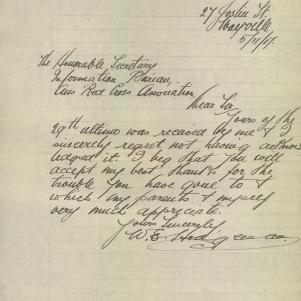 27 Joslin St.
Wayville
5/11/17.
The Honorable Secretary
Information Bureau,
Aus Red Cross Association
Dear Sir,
Yours of the
29th ultimo was received by me & I
sincerely regret not having acknow
ledged it. I beg that you will
accept my best thanks for the
trouble you have gone to &
which my parents & myself
very much appreciate.
Yours Sincerely
W. E.